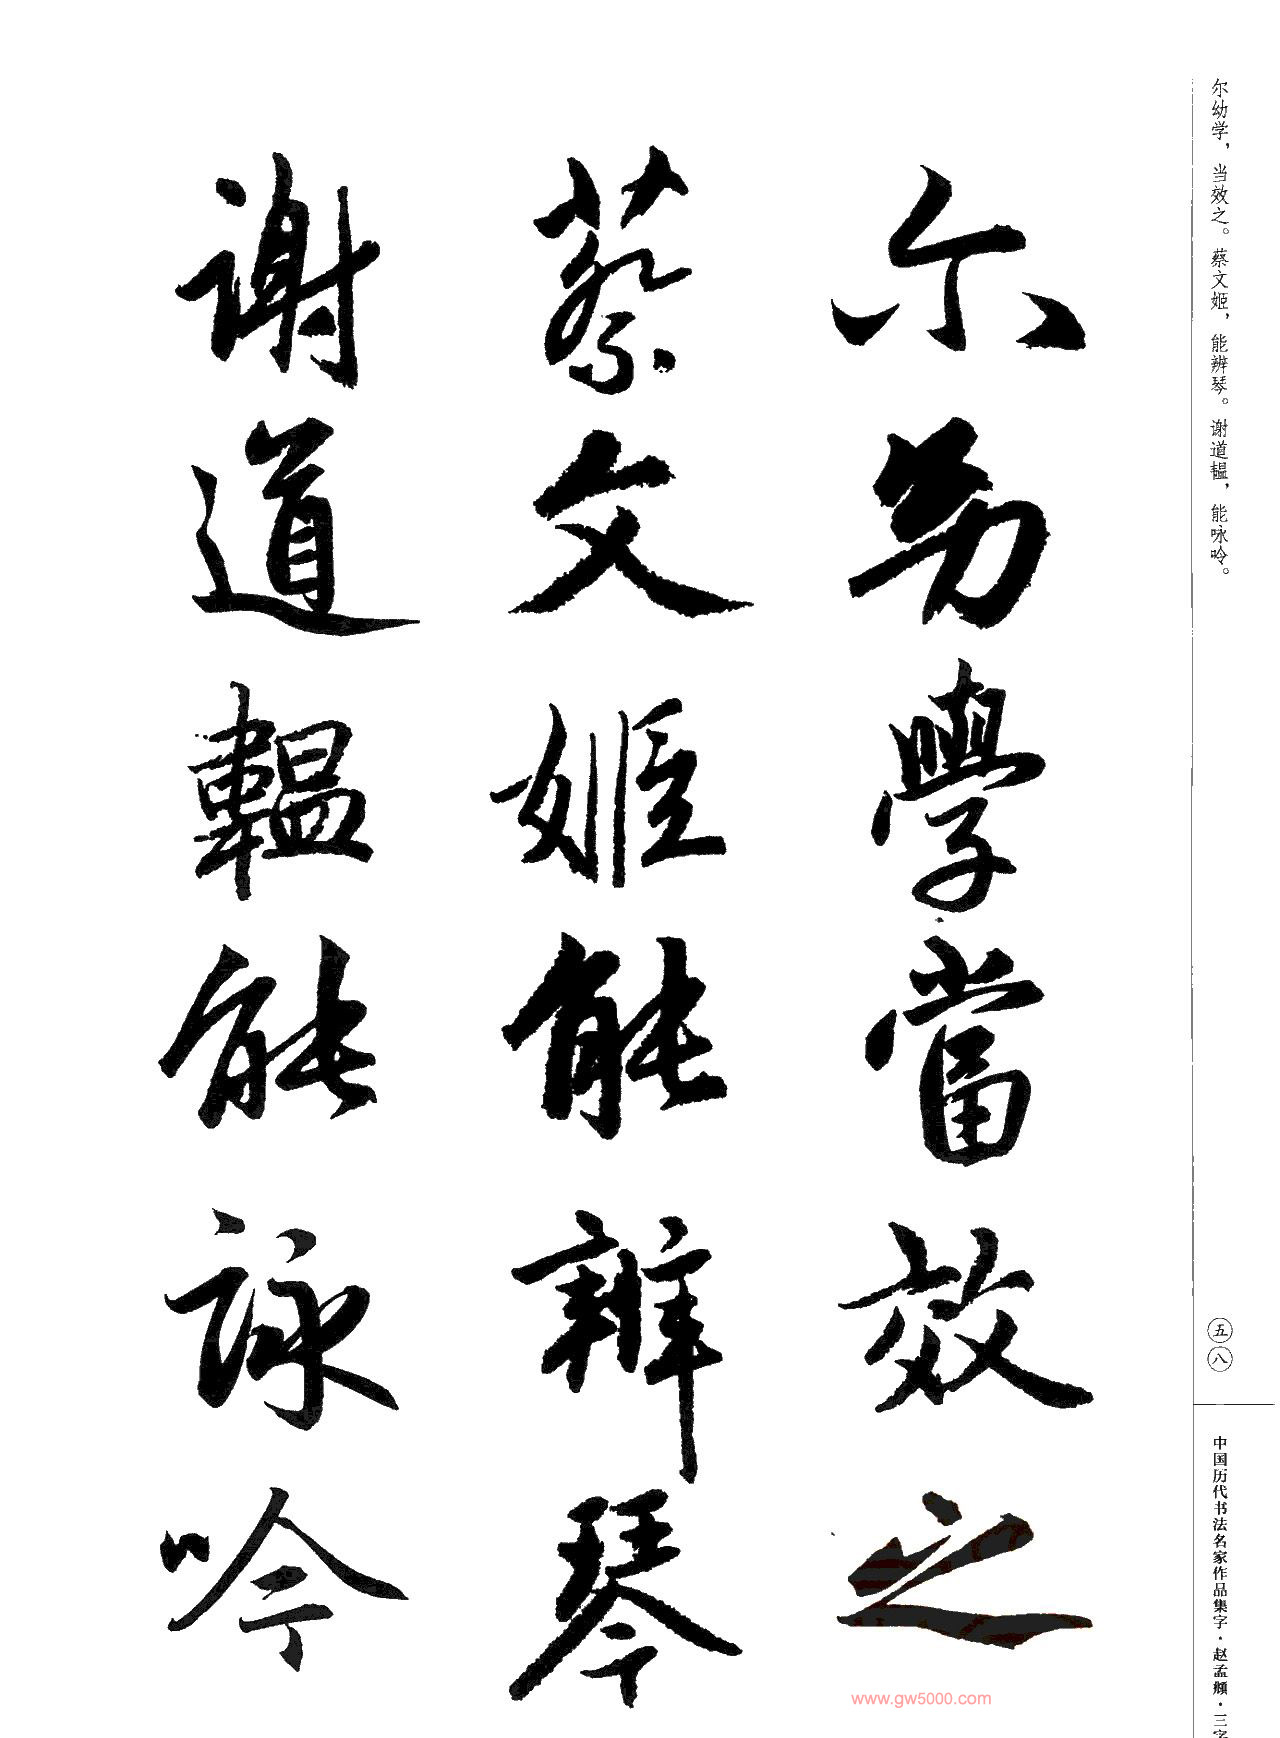 尔幼学，当效之。蔡文姬，能辨琴。谢道韫，能咏吟。
尔幼學當效之
蔡文姬能辨琴
谢道韞能詠吟
五八
中国历代书法名家作品集字·赵孟頫·三字
www.gw5000.com